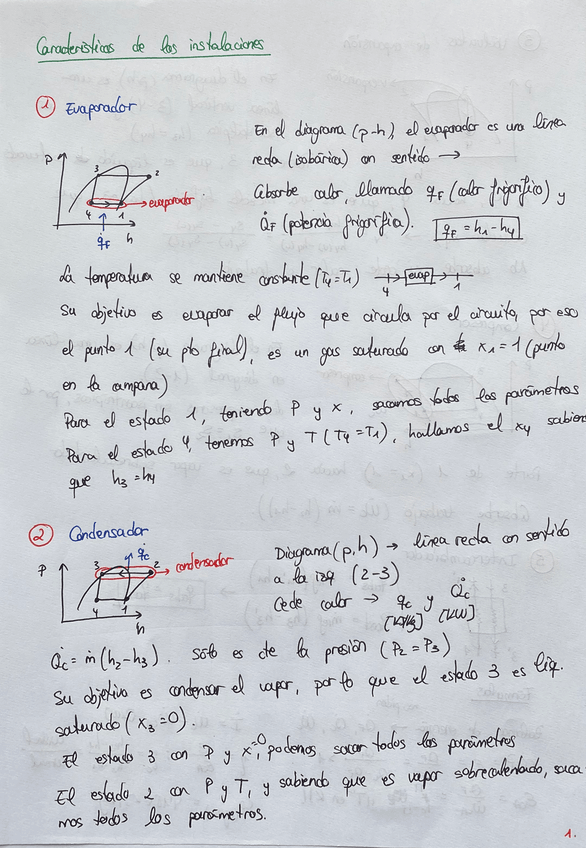 Características de las instalaciones
1 Evaporador
En el diagrama (p-h) el evaporador es una línea
recta (isobárica) con sentido →
Absorbe calor, llamado qF (calor frigorífico) y
Q̇F (potencia frigorífica). qF = h1 - h4
P
3
2
4
1
evaporador
q̇F
h
La temperatura se mantiene constante (T4 = T1) evap
4
1
Su objetivo es evaporar el flujo que circula por el circuito, por eso
el punto 1 (su pto final), es un gas saturado con x1 = 1 (punto
en la campana)
Para el estado 1, teniendo P y x, sacamos todos los parámetros
Para el estado 4, tenemos P y T (T4 = T1), hallamos el x4 sabien
que h3 = h4
2 Condensador
P
3
q̇c
2
condensador
4
1
h
Diagrama (p,h) → línea recta con sentido
a la izq (2-3)
Cede calor → qc y Q̇c
[KJ/Kg] [KW]
Q̇c = ṁ (h2 - h3). Sólo es cte la presión (P2 = P3)
Su objetivo es condensar el vapor, por lo que el estado 3 es líq.
saturado (x3 = 0).
El estado 3 con P y x=0, podemos sacar todos los parámetros
El estado 2 con P y T, y sabiendo que es vapor sobrecalentado, saca
mos todos los parámetros.
1.